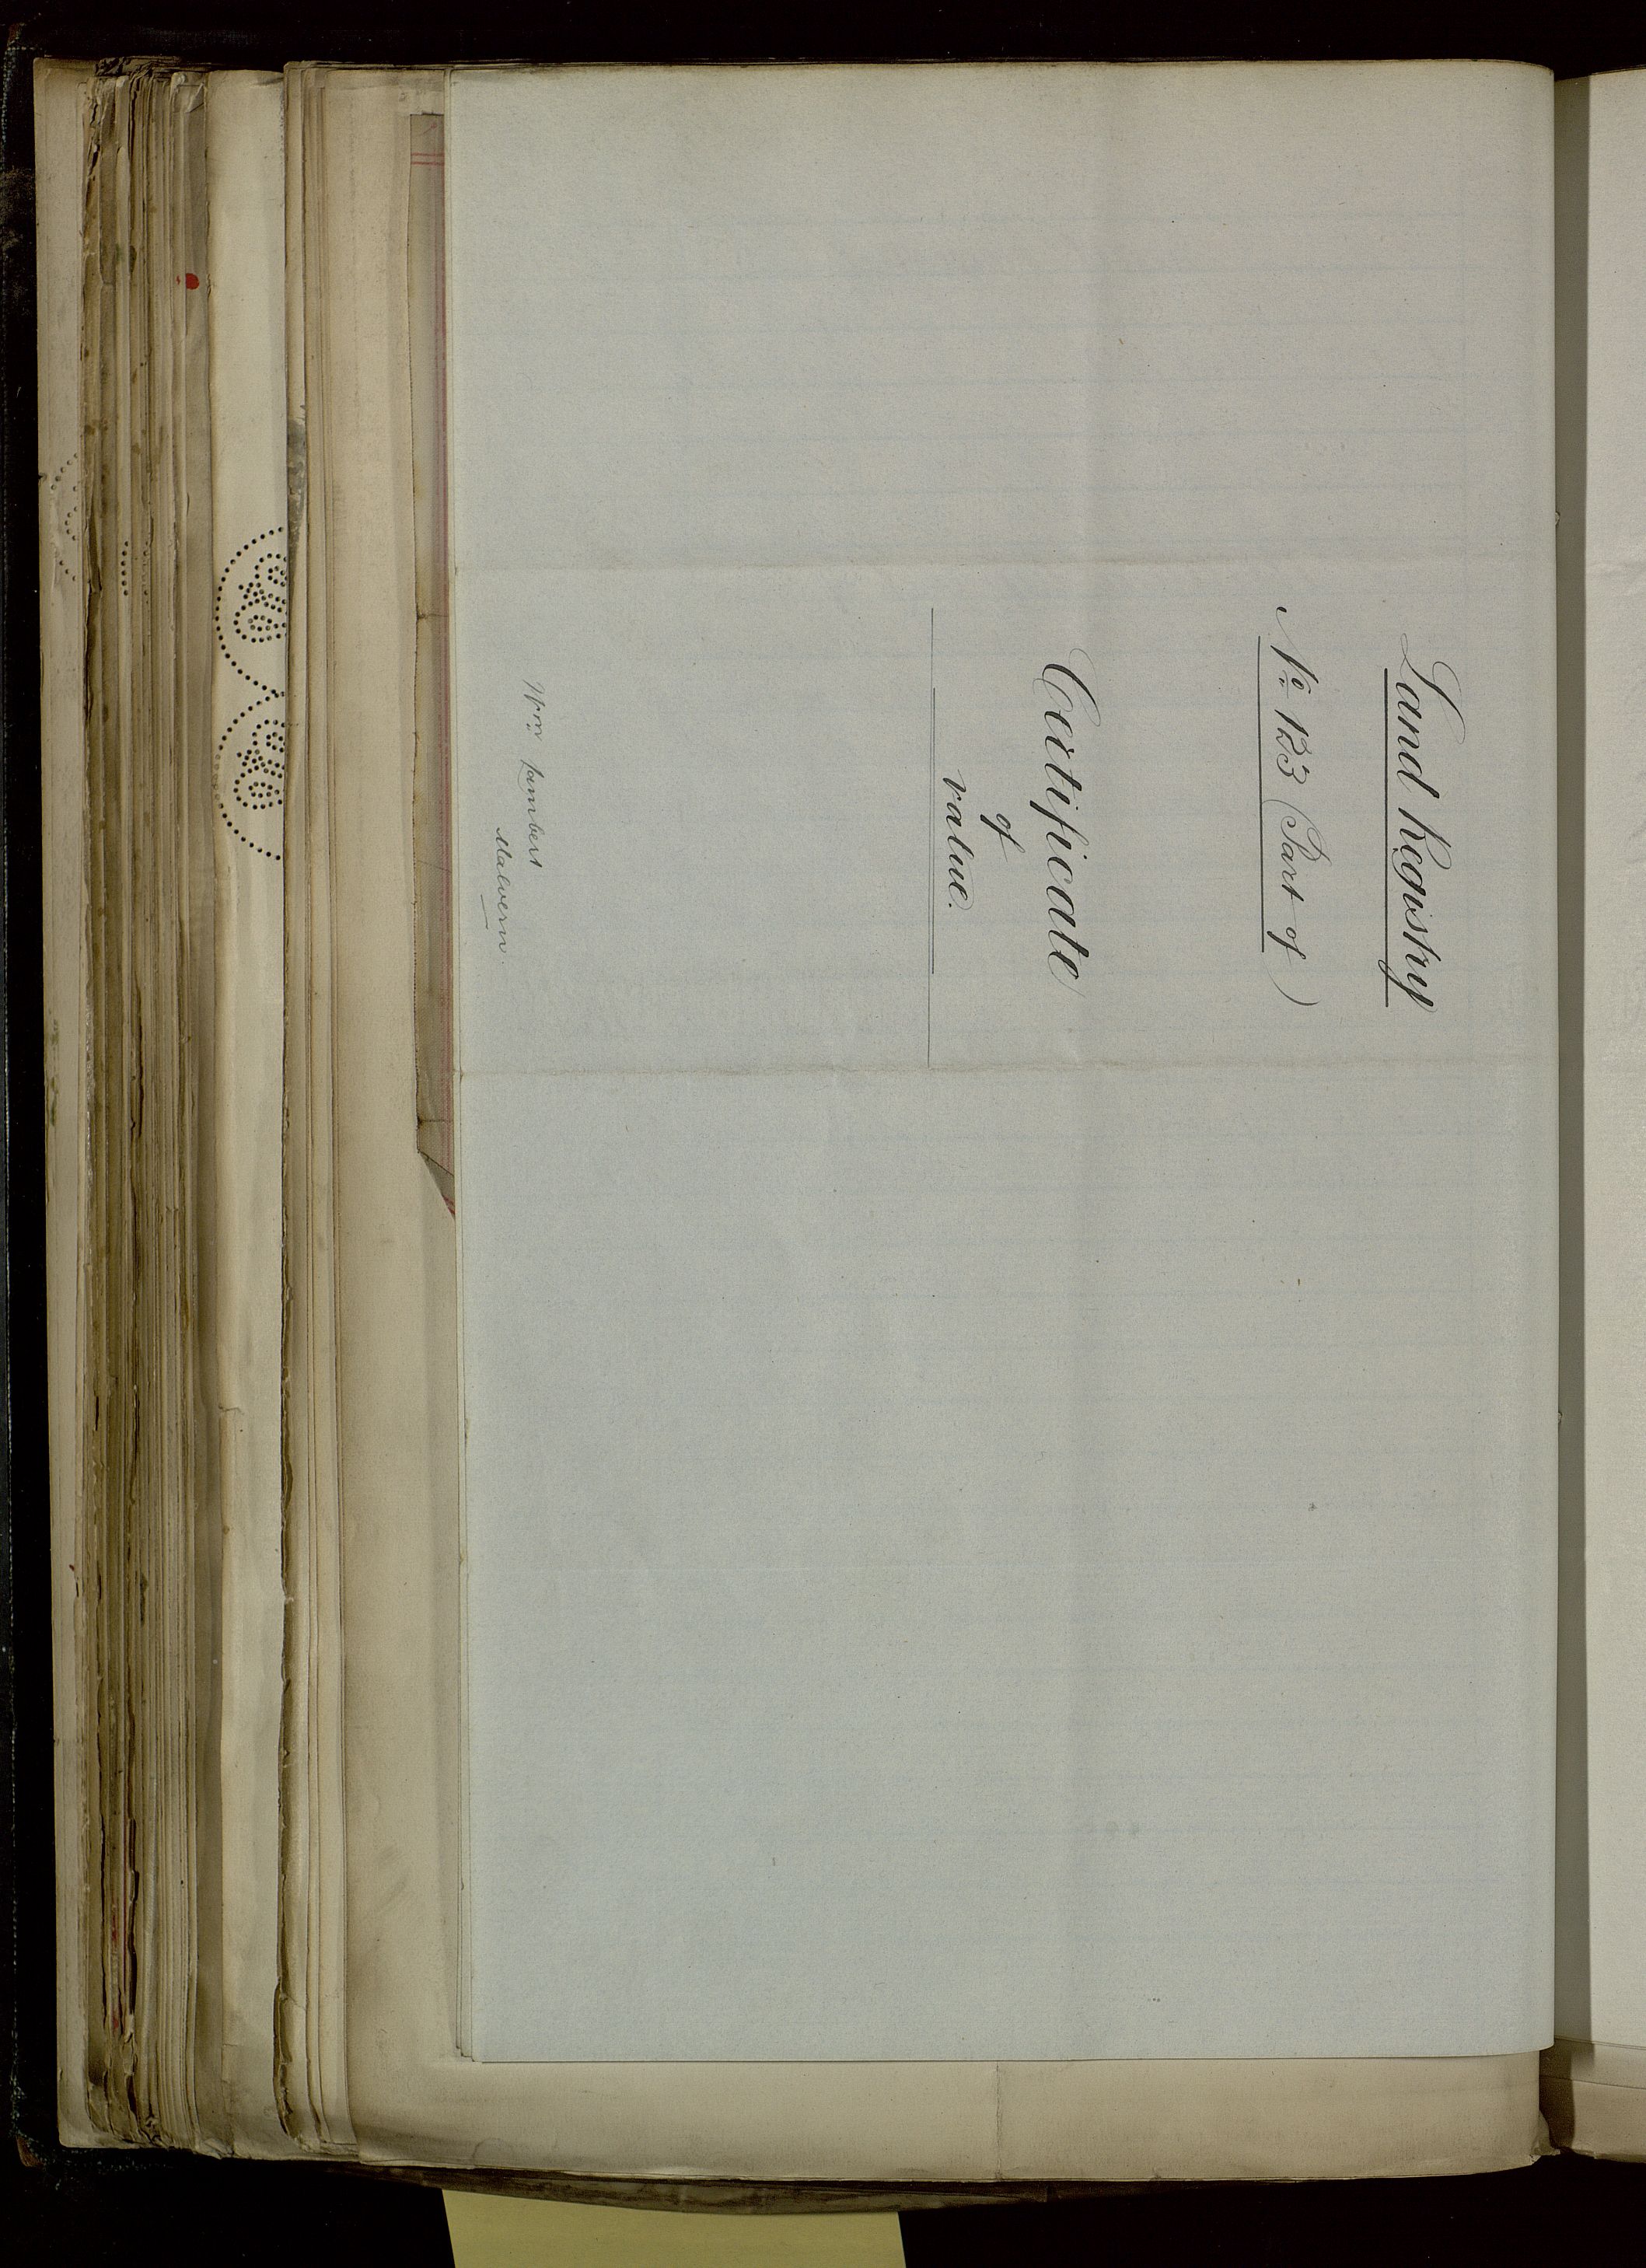 Land Registry
No. 123 (Part of)
Certificate
of
value.
Wm. Lambert
Malvern